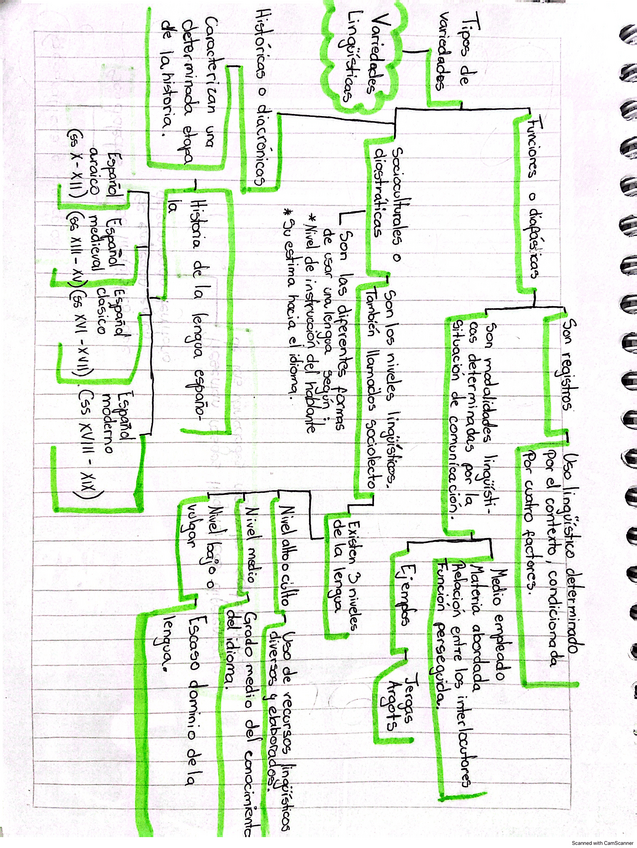 Variedades
Lingüísticas
Tipos de
variedades
Funciones o diafásticas
Son registros
Uso lingüístico determinado
por el contexto, condicionada
por cuatro factores.
Son modalidades lingüísti-
cas determinadas por la
situación de comunicación.
Medio empleado
Materia abordada
Relación entre los interlocutores
Función perseguida.
Ejemplos
Jergas
Argots
Socioculturales o
diastráticas
Son los niveles lingüísticos.
También llamados sociolecto
Son las diferentes formas
de usar una lengua según:
*Nivel de instrucción del hablante
*Su estima hacia el idioma.
Existen 3 niveles
de la lengua
Nivel alto o culto
Uso de recursos lingüísticos
diversos y elaborados.
Nivel medio
Grado medio del conocimiento
del idioma.
Nivel bajo o
vulgar
Escaso dominio de la
lengua.
Históricas o diacrónicas
Caracterizan una
determinada etapa
de la historia.
Historia de la lengua españo-
la
Español
arcaico
(ss X - XII)
Español
medieval
(ss XIII - XV)
Español
clásico
(ss XVI - XVII)
Español
moderno
(ss XVIII - XIX)
Scanned with CamScanner